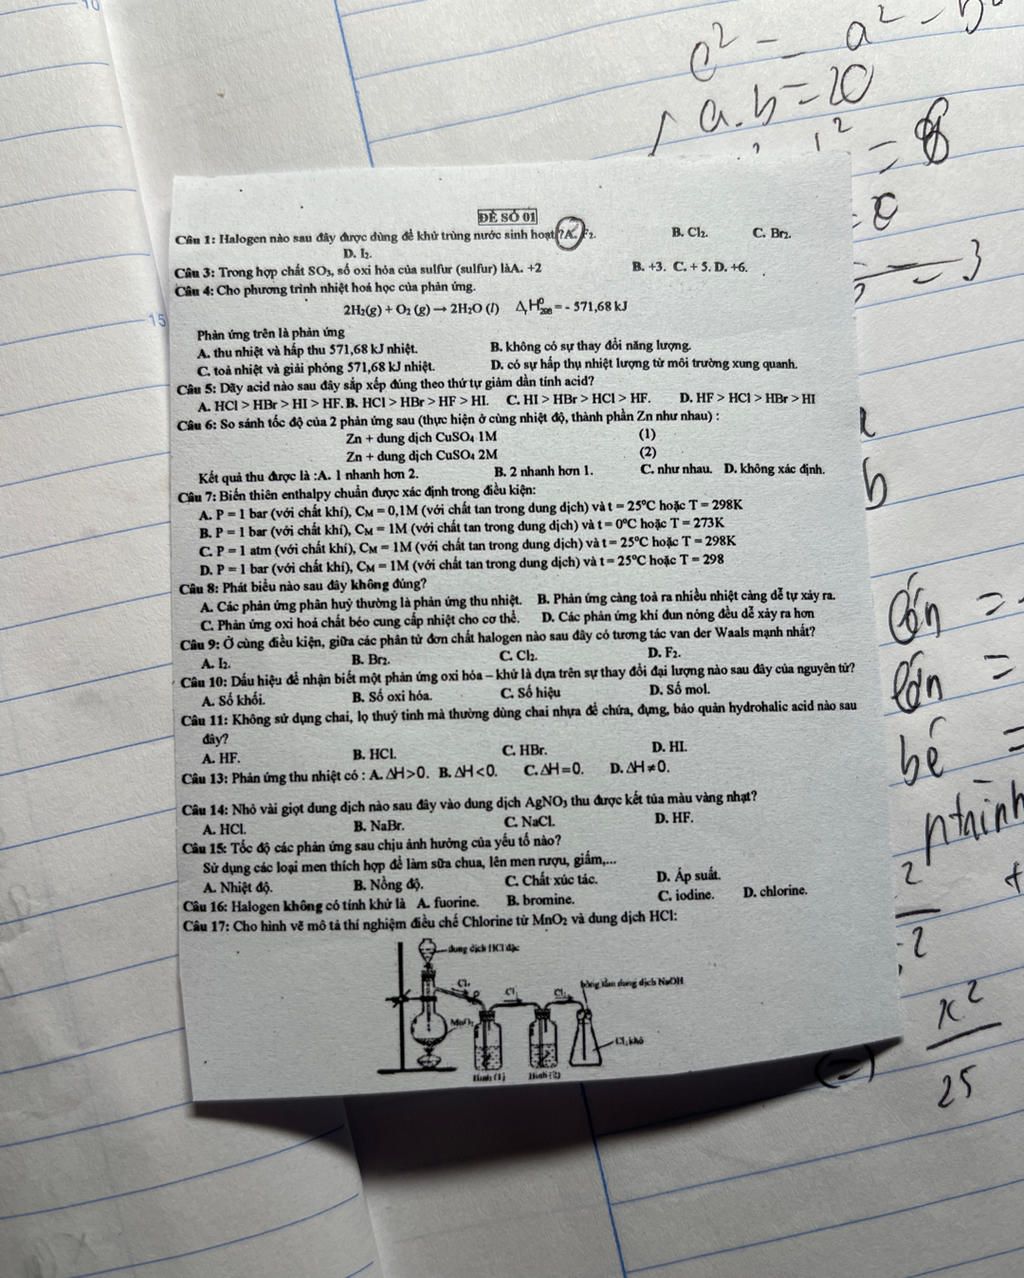 10
c² = a² - b²
a.b = 20
² = 8
= 0
3
2
15
ĐỀ SỐ 01
Câu 1: Halogen nào sau đây được dùng để khử trùng nước sinh hoạt?A. F₂. B. Cl₂. C. Br₂.
D. I₂.
Câu 3: Trong hợp chất SO₃, số oxi hóa của sulfur (sulfur) làA. +2 B. +3. C. + 5. D. +6.
Câu 4: Cho phương trình nhiệt hoá học của phản ứng.
2H₂(g) + O₂ (g) → 2H₂O (l) ΔᵣH⁰₂₉₈ = - 571,68 kJ
Phản ứng trên là phản ứng
A. thu nhiệt và hấp thu 571,68 kJ nhiệt. B. không có sự thay đổi năng lượng.
C. toả nhiệt và giải phóng 571,68 kJ nhiệt. D. có sự hấp thụ nhiệt lượng từ môi trường xung quanh.
Câu 5: Dãy acid nào sau đây sắp xếp đúng theo thứ tự giảm dần tính acid?
A. HCl > HBr > HI > HF. B. HCl > HBr > HF > HI. C. HI > HBr > HCl > HF. D. HF > HCl > HBr > HI
Câu 6: So sánh tốc độ của 2 phản ứng sau (thực hiện ở cùng nhiệt độ, thành phần Zn như nhau) :
Zn + dung dịch CuSO₄ 1M (1)
Zn + dung dịch CuSO₄ 2M (2)
Kết quả thu được là :A. 1 nhanh hơn 2. B. 2 nhanh hơn 1. C. như nhau. D. không xác định.
b
Câu 7: Biến thiên enthalpy chuẩn được xác định trong điều kiện:
A. P = 1 bar (với chất khí), Cᴍ = 0,1M (với chất tan trong dung dịch) và t = 25⁰C hoặc T = 298K
B. P = 1 bar (với chất khí), Cᴍ = 1M (với chất tan trong dung dịch) và t = 0⁰C hoặc T = 273K
C. P = 1 atm (với chất khí), Cᴍ = 1M (với chất tan trong dung dịch) và t = 25⁰C hoặc T = 298K
D. P = 1 bar (với chất khí), Cᴍ = 1M (với chất tan trong dung dịch) và t = 25⁰C hoặc T = 298
Câu 8: Phát biểu nào sau đây không đúng?
A. Các phản ứng phân huỷ thường là phản ứng thu nhiệt. B. Phản ứng càng toả ra nhiều nhiệt càng dễ tự xảy ra.
C. Phản ứng oxi hoá chất béo cung cấp nhiệt cho cơ thể. D. Các phản ứng khi đun nóng đều dễ xảy ra hơn
Câu 9: Ở cùng điều kiện, giữa các phân tử đơn chất halogen nào sau đây có tương tác van der Waals mạnh nhất?
A. I₂. B. Br₂. C. Cl₂. D. F₂.
lớn =
Câu 10: Dấu hiệu để nhận biết một phản ứng oxi hóa – khử là dựa trên sự thay đổi đại lượng nào sau đây của nguyên tử?
A. Số khối. B. Số oxi hóa. C. Số hiệu D. Số mol.
lớn =
Câu 11: Không sử dụng chai, lọ thuỷ tinh mà thường dùng chai nhựa để chứa, đựng, bảo quản hydrohalic acid nào sau
đây?
A. HF. B. HCl. C. HBr. D. HI.
bé =
Câu 13: Phản ứng thu nhiệt có : A. ΔH>0. B. ΔH<0. C. ΔH=0. D. ΔH≠0.
Câu 14: Nhỏ vài giọt dung dịch nào sau đây vào dung dịch AgNO₃ thu được kết tủa màu vàng nhạt?
A. HCl. B. NaBr. C. NaCl. D. HF.
Câu 15: Tốc độ các phản ứng sau chịu ảnh hưởng của yếu tố nào?
Sử dụng các loại men thích hợp để làm sữa chua, lên men rượu, giấm,...
A. Nhiệt độ. B. Nồng độ. C. Chất xúc tác. D. Áp suất.
2
Câu 16: Halogen không có tính khử là A. fuorine. B. bromine. C. iodine. D. chlorine.
Câu 17: Cho hình vẽ mô tả thí nghiệm điều chế Chlorine từ MnO₂ và dung dịch HCl:
2
dung dịch HCl đặc
Cl₂ Cl₂ Cl₂ bông tẩm dung dịch NaOH
MnO₂
Cl₂ khô
Hình (1) Hình (2)
x²
25
(=)